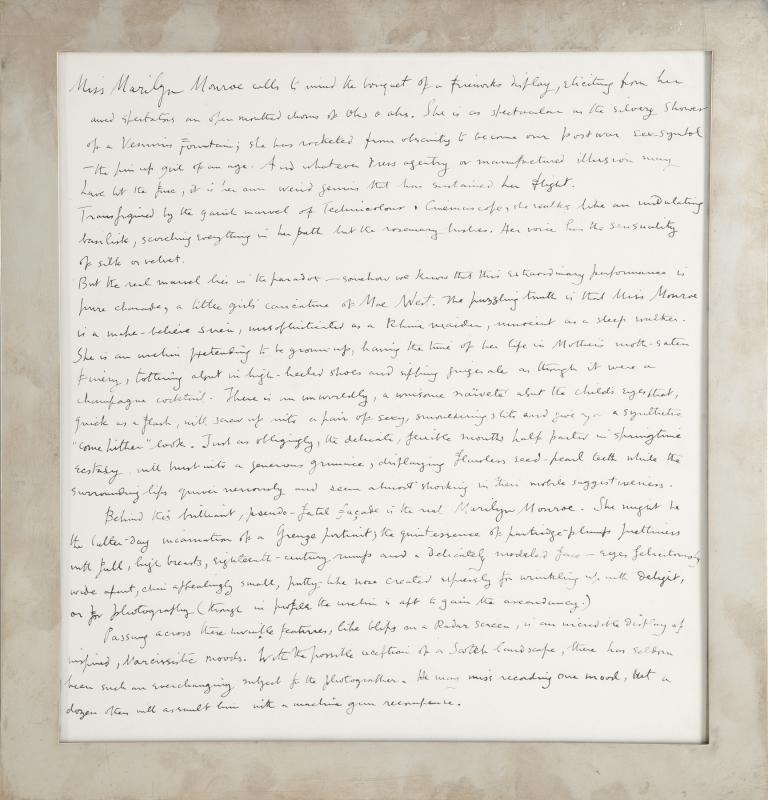 Miss Marilyn Monroe calls to mind the bouquet of a fireworks display, eliciting from her
awed spectators an open mouthed chorus of Ohs & ahs. She is as spectacular as the silvery shower
of a Vesuvius Fountain; she has rocketed from obscurity to become our post war sex-symbol
— the pin up girl of an age. And whatever press agentry or manufactured illusion may
have lit the fuse, it is her own weird genius that has sustained her flight.
Transfigured by the garish marvel of Technicolour & Cinemascope, she walks like an undulating
basilisk, scorching everything in her path but the rosemary bushes. Her voice has the sensuality
of silk or velvet.
But the real marvel lies in the paradox — somehow we know that this extraordinary performance is
pure charade, a little girl's caricature of Mae West. The puzzling truth is that Miss Monroe
is a make-believe siren, unsophisticated as a Rhine maiden, innocent as a sleep walker.
She is an urchin pretending to be grown-up, having the time of her life in Mother's moth-eaten
finery, tottering about in high-heeled shoes and sipping ginger ale as though it were a
champagne cocktail. There is an unworldly, a winsome naiveté about the child's eyes that,
quick as a flash, will screw up into a pair of sexy, smouldering slits and give you a synthetic
"come hither" look. Just as obligingly, the delicate, flexible mouth half parted in springtime
ecstasy will burst into a generous grimace, displaying flawless seed-pearl teeth while the
surrounding lips quiver nervously and seem almost shocking in their mobile suggestiveness.
Behind this brilliant, pseudo-fatal façade is the real Marilyn Monroe. She might be
the latter-day incarnation of a Greuze portrait; the quintessence of partridge-plump prettiness
with full, high breasts, eighteenth-century rumps and a delicately modeled face — eyes felicitously
wide apart, chin appealingly small, putty-like nose created expressly for wrinkling up with delight,
or for photography (though in profile the urchin is apt to gain the ascendancy.)
Passing across these invisible features, like blips on a Radar screen, is an incredible display of
inspired, Narcissistic moods. With the possible exception of a Scotch landscape, there has seldom
been such an everchanging subject for the photographer. He may miss recording one mood, but a
dozen others will assault him with a machine gun recompense.